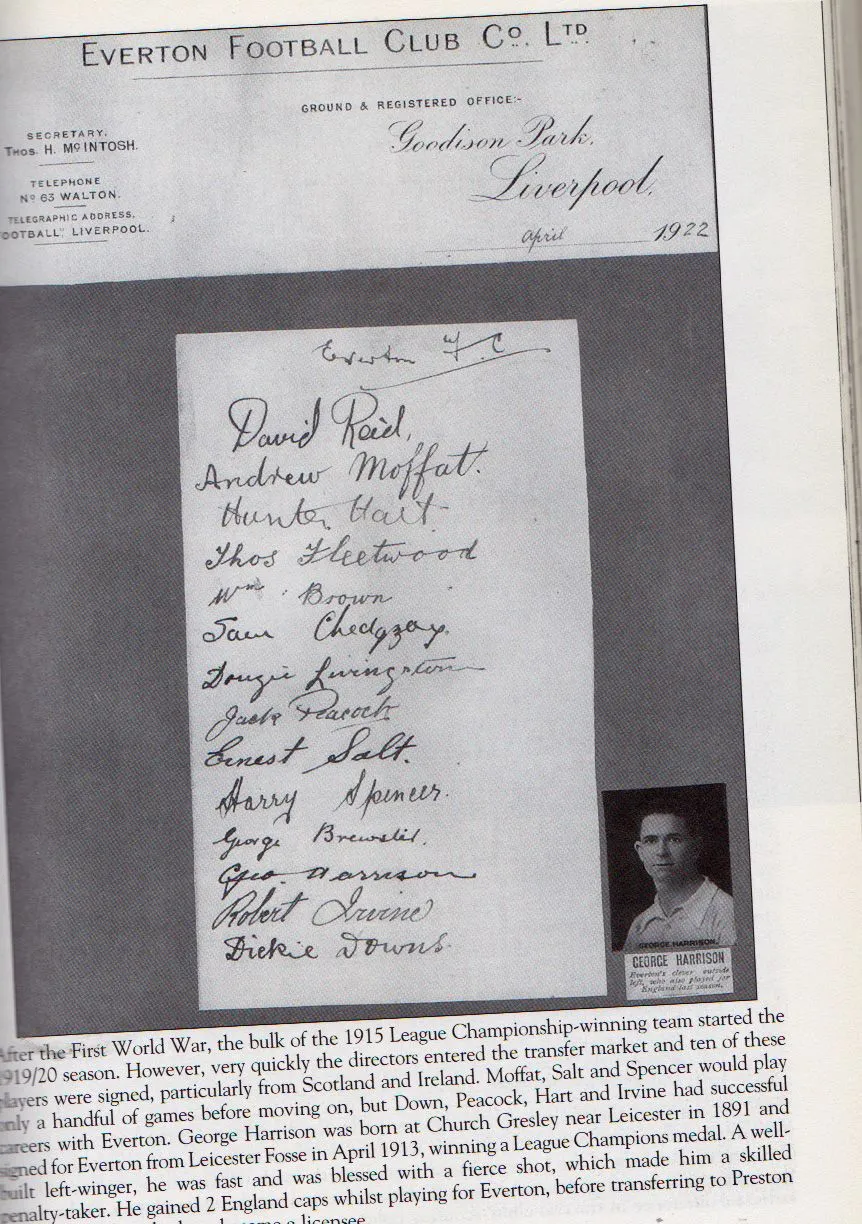 EVERTON FOOTBALL CLUB CO. LTD
GROUND & REGISTERED OFFICE:-
Goodison Park,
Liverpool.
SECRETARY,
THOS. H. McINTOSH.
TELEPHONE
No 63 WALTON.
TELEGRAPHIC ADDRESS,
OOTBALL" LIVERPOOL.
April 1922
Everton F.C
David Reid,
Andrew Moffat.
Hunter Hart
Thos Fleetwood
Wm. Brown
Sam Chedgzoy.
Dougie Livingston
Jack Peacock
Ernest Salt.
Harry Spencer.
George Brewster.
Geo. Harrison
Robert Irvine
Dickie Downs.
GEORGE HARRISON.
GEORGE HARRISON
Everton's clever outside
left, who also played for
England last season.
After the First World War, the bulk of the 1915 League Championship-winning team started the
1919/20 season. However, very quickly the directors entered the transfer market and ten of these
players were signed, particularly from Scotland and Ireland. Moffat, Salt and Spencer would play
only a handful of games before moving on, but Down, Peacock, Hart and Irvine had successful
careers with Everton. George Harrison was born at Church Gresley near Leicester in 1891 and
signed for Everton from Leicester Fosse in April 1913, winning a League Champions medal. A well-
built left-winger, he was fast and was blessed with a fierce shot, which made him a skilled
penalty-taker. He gained 2 England caps whilst playing for Everton, before transferring to Preston
a licensee.